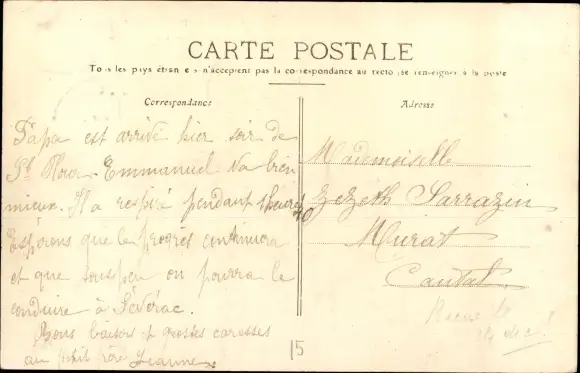 CARTE POSTALE
Tous les pays étrangers n'acceptent pas la correspondance au recto (se renseigner à la poste
Correspondance
Papa est arrivé hier soir de
St Flour. Emmanuel va bien
mieux. Il a respiré pendant 1 heure
Espérons que le progrès continuera
et que sous peu on pourra le
conduire à Sévérac.
Bons baisers et grosses caresses
au petit frère Jeanne.
Adresse
Mademoiselle
Zézeth Sarrazin
Murat
Cantal
15